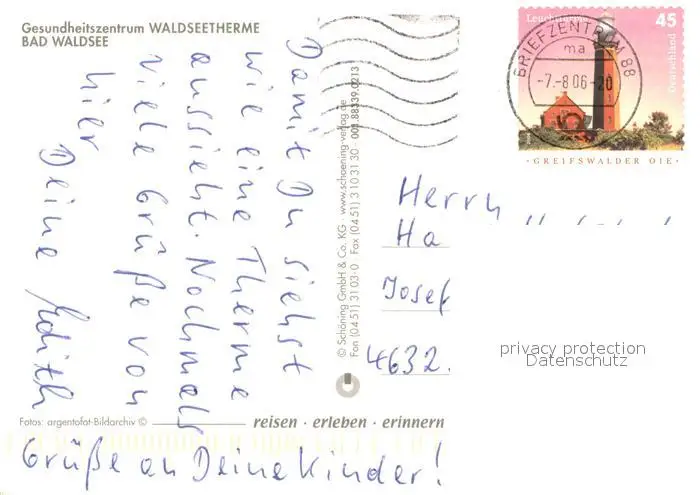 Gesundheitszentrum WALDSEETHERME
BAD WALDSEE
Damit Du siehst
wie eine Therme
aussieht. Nochmals
viele Grüße von
hier
Deine Edith
Grüße an Deine Kinder!
Fotos: argentofot-Bildarchiv ©
reisen · erleben · erinnern
© Schöning GmbH & Co. KG · www.schoening-verlag.de
Fon (04 51) 31 03-0 Fax (04 51) 3 10 31 30 · 001.88339.0213
Leuchttürme
45
Deutschland
BRIEFZENTRUM 88
ma
-7.-8.06-20
· GREIFSWALDER OIE ·
Herrn
Ha
Josef
4632.
privacy protection
Datenschutz